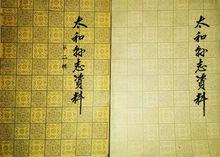 太和县志资料
第一辑
太和县志资料